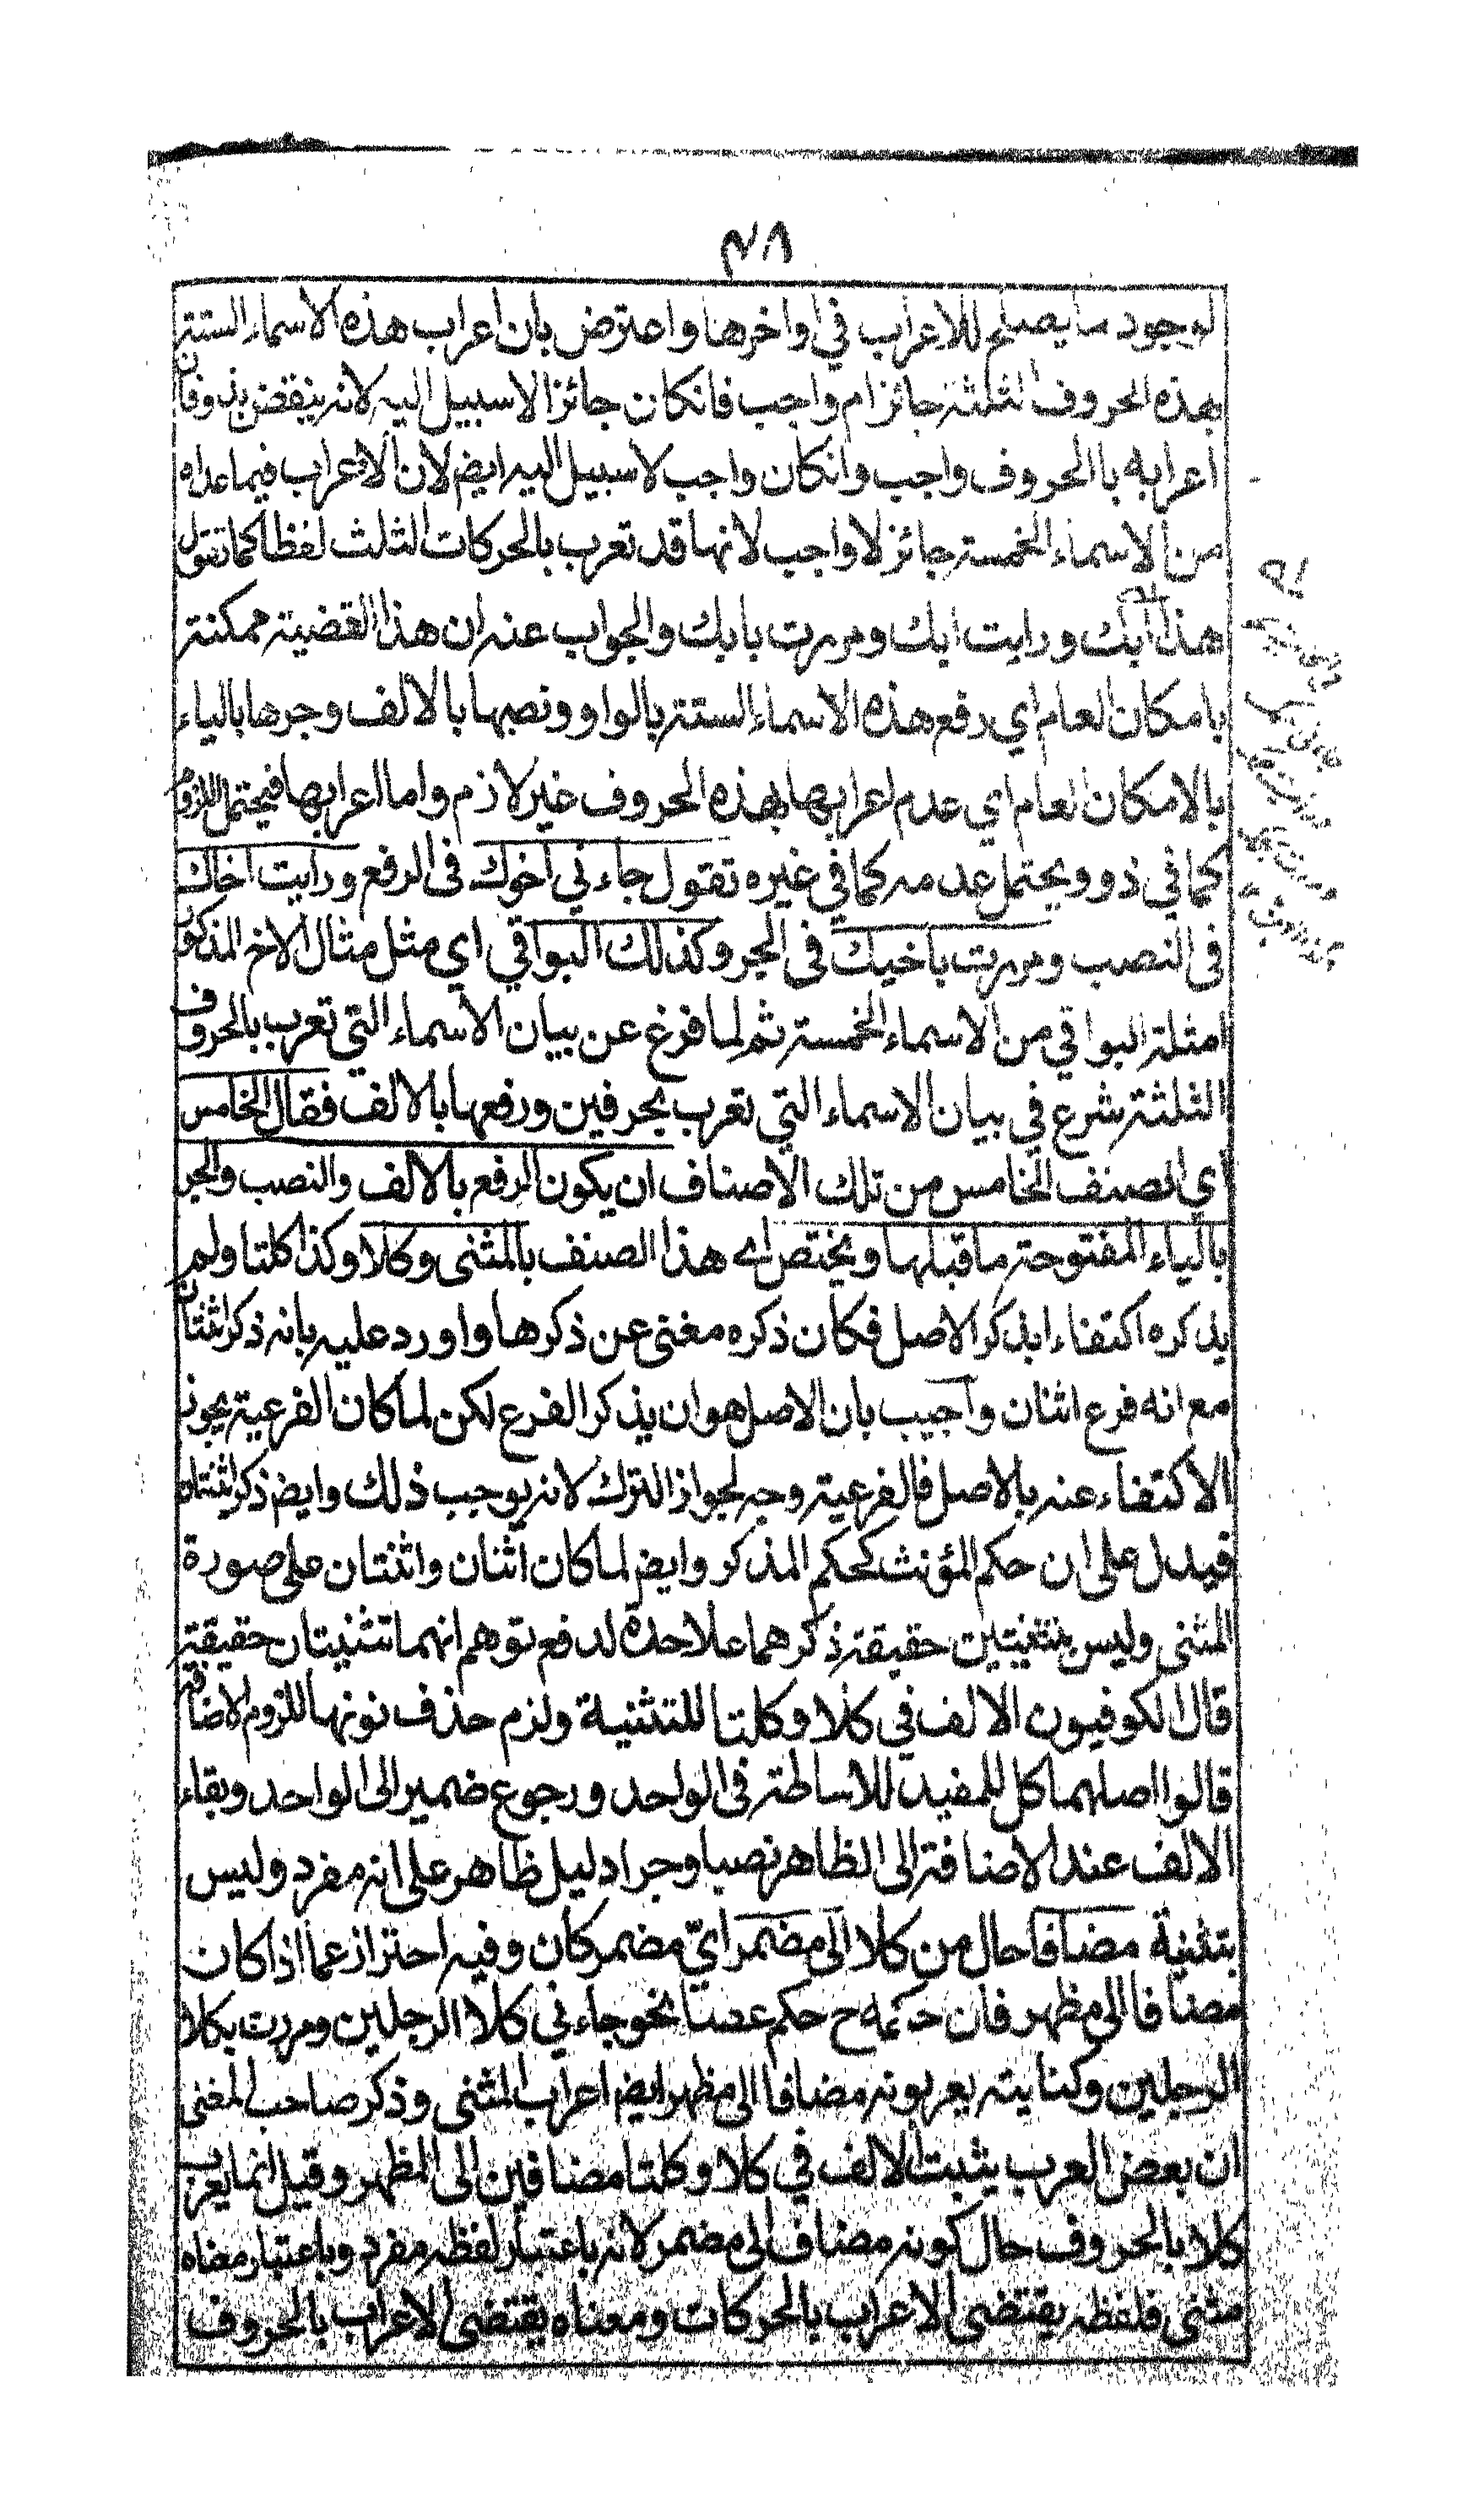 ٤٨
لوجود ما يصلح للاعراب في اواخرها واعترض بان اعراب هذه الاسماء الستة
بهذه الحروف الثلثة جائز ام واجب فانكان جائزا لا سبيل اليه لانه ينقض بذو فان
اعرابه باالحروف واجب وانكان واجب لا سبيل اليه ايض لان الاعراب فيما عداه
من الاسماء الخمسة جائز لا واجب لانها قد تعرب بالحركات الثلث لفظا كما تقول
هذا ابك ورايت ابك ومررت بابك والجواب عنه ان هذا القضية ممكنة
بامكان العام اي رفع هذه الاسماء الستة بالواو ونصبها بالالف وجرها بالياء
بالامكان العام اي عدم اعرابها بهذه الحروف غير لازم واما اعرابها فيحتمل اللزوم
كما في ذو ويحتمل عدمه كما في غيره تقول جاءني اخوك فى الرفع ورايت اخاك
فى النصب ومررت باخيك فى الجر وكذلك البواقي اي مثل مثال الاخ المذكور
امثلة البواقي من الاسماء الخمسة ثم لما فرغ عن بيان الاسماء التي تعرب بالحروف
الثلثة شرع في بيان الاسماء التي تعرب بحرفين ورفعها بالالف فقال الخامس
اي الصنف الخامس من تلك الاصناف ان يكون الرفع بالالف والنصب والجر
بالياء المفتوحة ما قبلها ويختص اے هذا الصنف بالمثنى وكلا وكذا كلتا ولم
يذكره اكتفاء ابذكر الاصل فكان ذكره مغنى عن ذكرها واورد عليه بانه ذكر اثنتان
مع انه فرع اثنان واجيب بان الاصل هو ان يذكر الفرع لكن لما كان الفرعية يجوز
الاكتفاء عنه بالاصل فالفرعية وجه لجواز الترك لانه يوجب ذلك وايض ذكر اثنتان
فيدل على ان حكم المؤنث كحكم المذكر وايض لما كان اثنان واثنتان على صورة
المثنى وليس بتثنيتين حقيقة ذكرهما علاحدة لدفع توهم انهما تثنيتان حقيقية
قال الكوفيون الالف في كلا وكلتا للتثنية ولزم حذف نونها للزوم الاضافة
قالوا اصلهما كل للمفيد للاساطة فى الواحد ورجوع ضمير الى الواحد وبقاء
الالف عند الاضافة الى الظاهر نصبا وجرا دليل ظاهر على انه مفرد وليس
بتثنية مضافا حال من كلا الى مضمر ايّ مضمر كان وفيه احتراز عما اذا كان
مضافا الى مظهر فان حكمه ح حكم عصا نحو جاءني كلا الرجلين ومررت بكلا
الرجلين وكنايته يعربونه مضافا الى مظهر ايض اعراب المثنى وذكر صاحب المغنى
ان بعض العرب يثبت الالف في كلا وكلتا مضافين الى المظهر وقيل انما يعرب
كلا بالحروف حال كونه مضاف الى مضمر لانه باعتبار لفظه مفرد وباعتبار معناه
مثنى فلفظه يقتضى الاعراب بالحركات ومعناه يقتضى الاعراب بالحروف